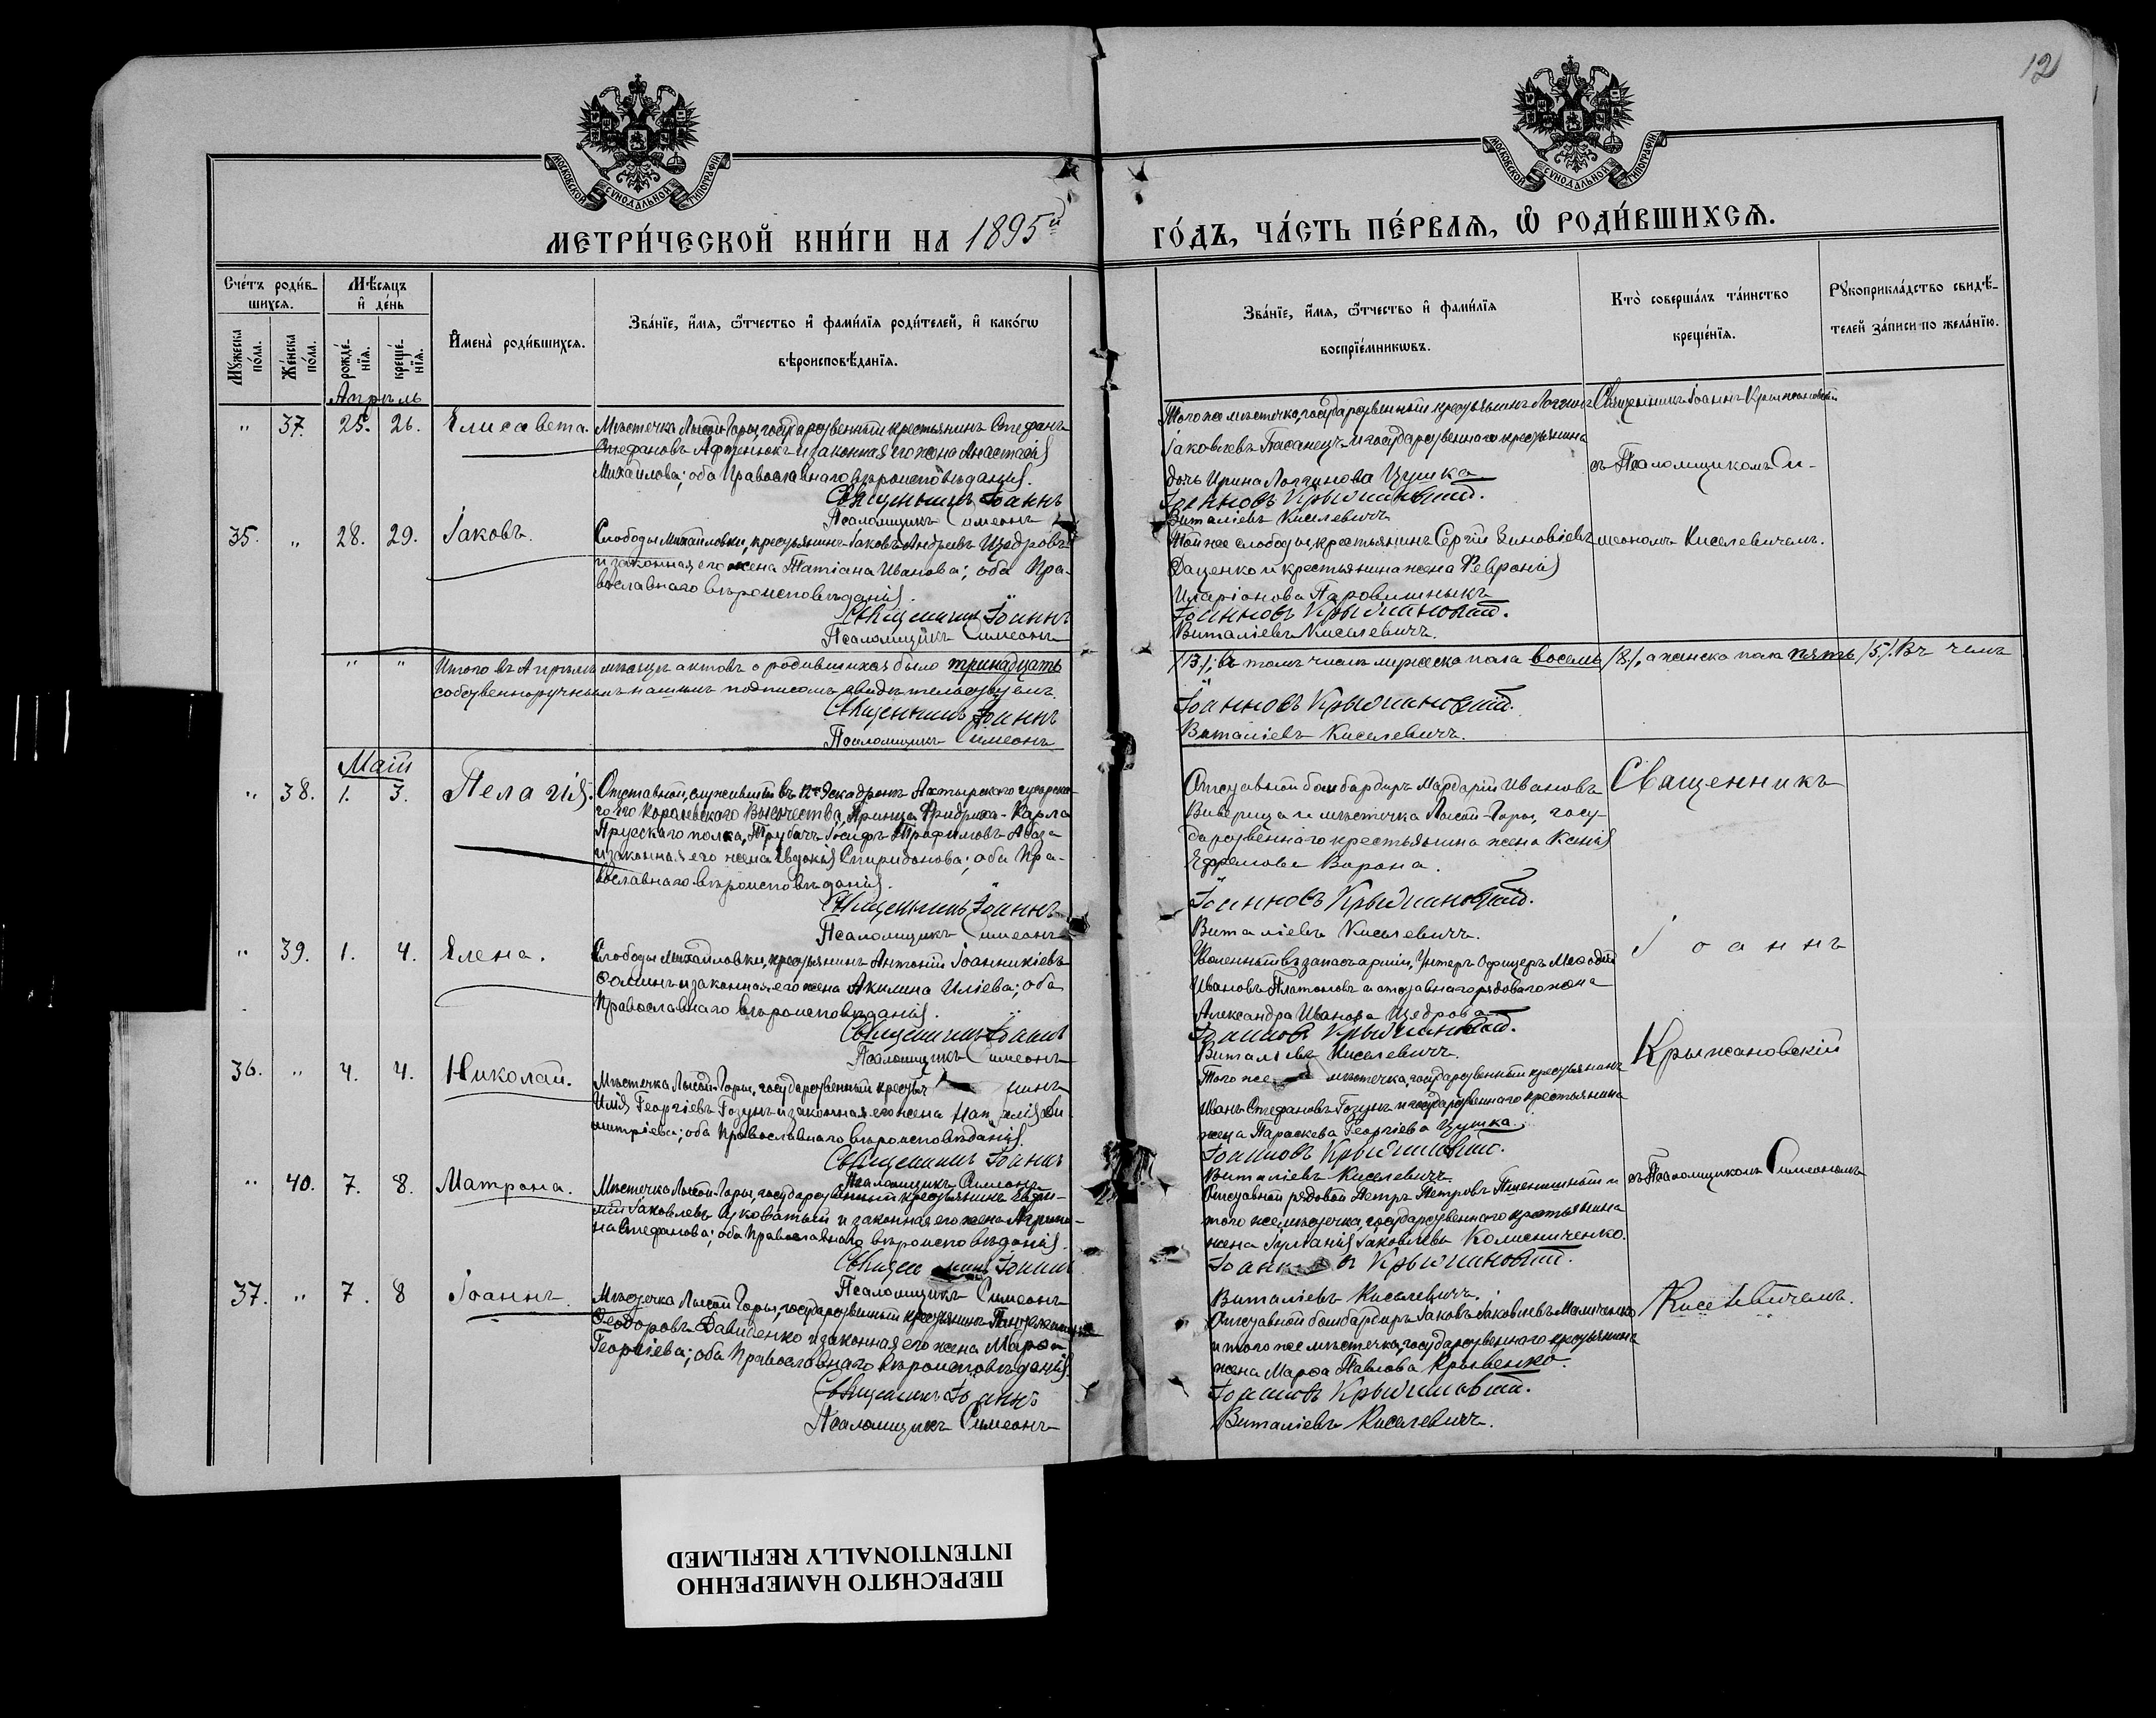 12
МОСКОВСКОЙ СѴНОДАЛЬНОЙ ТИПОГРАФІИ
МОСКОВСКОЙ СѴНОДАЛЬНОЙ ТИПОГРАФІИ
МЕТРИ́ЧЕСКОЙ КНИ́ГИ НА 1895й ГО́ДЪ, ЧА́СТЬ ПЕ́РВАѦ, Ѡ҆ РОДИ́ВШИХСѦ.
Сче́тъ роди́в-
шихсѧ.
Мꙋ́жеска по́ла.
Же́нска по́ла.
Мѣ́сѧцъ
и҆ де́нь
рожде́-
нїѧ.
креще́-
нїѧ.
И҆мена̀ роди́вшихсѧ.
Зва́нїе, и҆́мѧ, ѻ҆́тчество и҆ фами́лїѧ роди́телей, и҆ како́гѡ
вѣроисповѣ́данїѧ.
Зва́нїе, и҆́мѧ, ѻ҆́тчество и҆ фами́лїѧ
воспрїе́мникѡвъ.
Кто̀ соверша́лъ та́инство
креще́нїѧ.
Рꙋкоприкла́дство свидѣ́-
телей за́писи по жела́нїю.
Апрѣль
" 37. 25. 26. Елисавета.
Мѣстечка Лысой-Горы, государственный крестьянинъ Стефанъ
Стефановъ Афтенюкъ и законная его жена Анастасія
Михайлова; оба Православнаго вѣроисповѣданія.
Священникъ Іоаннъ
Псаломщикъ Симеонъ
Того же мѣстечка, государственный крестьянинъ Логгинъ
Іаковлевъ Пасанецъ и государственнаго крестьянина
дочь Ирина Логгинова Цушка
Іоанновъ Крыжановскій.
Виталіевъ Киселевичъ
Священникъ Іоаннъ Крыжановскій
съ Псаломщикомъ Си-
35. " 28. 29. Іаковъ.
Слободы Михайловки, крестьянинъ Іаковъ Андреевъ Щедровъ
и законная его жена Татіана Иванова; оба Пра-
вославнаго вѣроисповѣданія.
Священникъ Іоаннъ
Псаломщикъ Симеонъ
Той же слободы, крестьянинъ Сергій Зиновіевъ
Даценко и крестьянина жена Февронія
Иларіонова
Іоанновъ Крыжановскій.
Виталіевъ Киселевичъ.
меономъ Киселевичемъ.
" " Итого въ Апрѣлѣ мѣсяцѣ актовъ о родившихся было тринадцать /13/; въ томъ числѣ мужеска пола восемь /8/, а женска пола пять /5/. Въ чемъ
собственноручнымъ нашимъ подписомъ свидѣтельствуемъ.
Священникъ Іоаннъ Іоанновъ Крыжановскій.
Псаломщикъ Симеонъ Виталіевъ Киселевичъ.
Май
" 38. 1. 3. Пелагія.
Отставной, служившій въ Эскадронѣ Ахтырскаго гусарска-
го Его Королевскаго Высочества, Принца Фридриха-Карла
Прусскаго полка, Трубачъ Іосифъ Трофимовъ Абаза
и законная его жена Евдокія Спиридонова; оба Пра-
вославнаго вѣроисповѣданія.
Священникъ Іоаннъ
Псаломщикъ Симеонъ
Отставной бомбардиръ Мардарій Ивановъ
Виверица и мѣстечка Лысой-Горы, госу-
дарственнаго крестьянина жена Ксенія
Ефремова Ворона.
Іоанновъ Крыжановскій.
Виталіевъ Киселевичъ.
Священникъ
" 39. 1. 4. Елена.
Слободы Михайловки, крестьянинъ Антоній Іоанникіевъ
Ѳоминъ и законная его жена Акилина Иліева; оба
Православнаго вѣроисповѣданія.
Священникъ Іоаннъ
Псаломщикъ Симеонъ
Уволенный въ запасъ арміи, Унтеръ Офицеръ Меѳодій
Ивановъ Платоновъ и отставнаго рядоваго жена
Александра Иванова Щедрова
Іоанновъ Крыжановскій.
Виталіевъ Киселевичъ.
Іоаннъ
36. " 4. 4. Николай.
Мѣстечка Лысой-Горы, государственный крестья нинъ
Илія Георгіевъ Гозунъ и законная его жена Наталія Ди-
митріева; оба Православнаго вѣроисповѣданія.
Священникъ Іоаннъ
Псаломщикъ Симеонъ
Того же мѣстечка, государственный крестьянинъ
Иванъ Стефановъ Гозунъ и государственнаго крестьянина
жена Параскева Георгіева Цушка.
Іоанновъ Крыжановскій.
Виталіевъ Киселевичъ.
Крыжановскій
" 40. 7. 8. Матрона.
Мѣстечка Лысой-Горы, государственный крестьянинъ Евфи-
мій Іаковлевъ и законная его жена Агрипи-
на Стефанова; оба Православнаго вѣроисповѣданія.
Священникъ Іоаннъ
Псаломщикъ Симеонъ
Отставной рядовой Петръ Петровъ Пшеничный и
того же мѣстечка, государственнаго крестьянина
жена Іуліанія Іаковлева Колисниченко.
Іоанновъ Крыжановскій.
Виталіевъ Киселевичъ.
съ Псаломщикомъ Симеономъ
37. " 7. 8 Іоаннъ.
Мѣстечка Лысой Горы, государственный крестьянинъ
Ѳеодоровъ Давиденко и законная его жена Марѳа
Георгіева; оба Православнаго вѣроисповѣданія.
Священникъ Іоаннъ
Псаломщикъ Симеонъ
Отставной бомбардиръ Іаковъ Іаковлевъ Маличенко
и того же мѣстечка, государственнаго крестьянина
жена Марѳа Павлова Кривенко.
Іоанновъ Крыжановскій.
Виталіевъ Киселевичъ.
Киселевичемъ.
ПЕРЕСНЯТО НАМЕРЕННО
INTENTIONALLY REFILMED